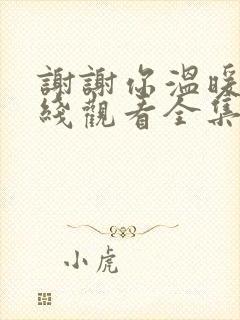 謝謝你溫暖
綫觀看全集
小虎